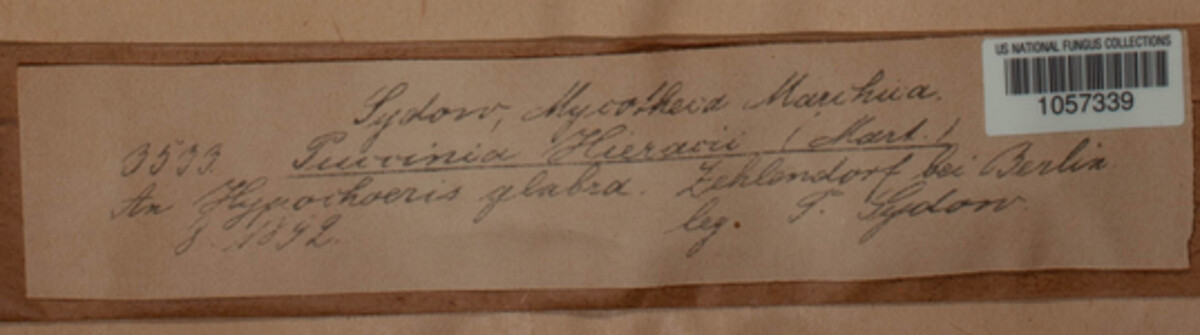 US NATIONAL FUNGUS COLLECTIONS
1057339
Sydow, Mycotheca Marchica.
3533. Puccinia Hieracii (Mart.)
An Hypochoeris glabra. Zehlendorf bei Berlin.
8. 1892. leg. P. Sydow.